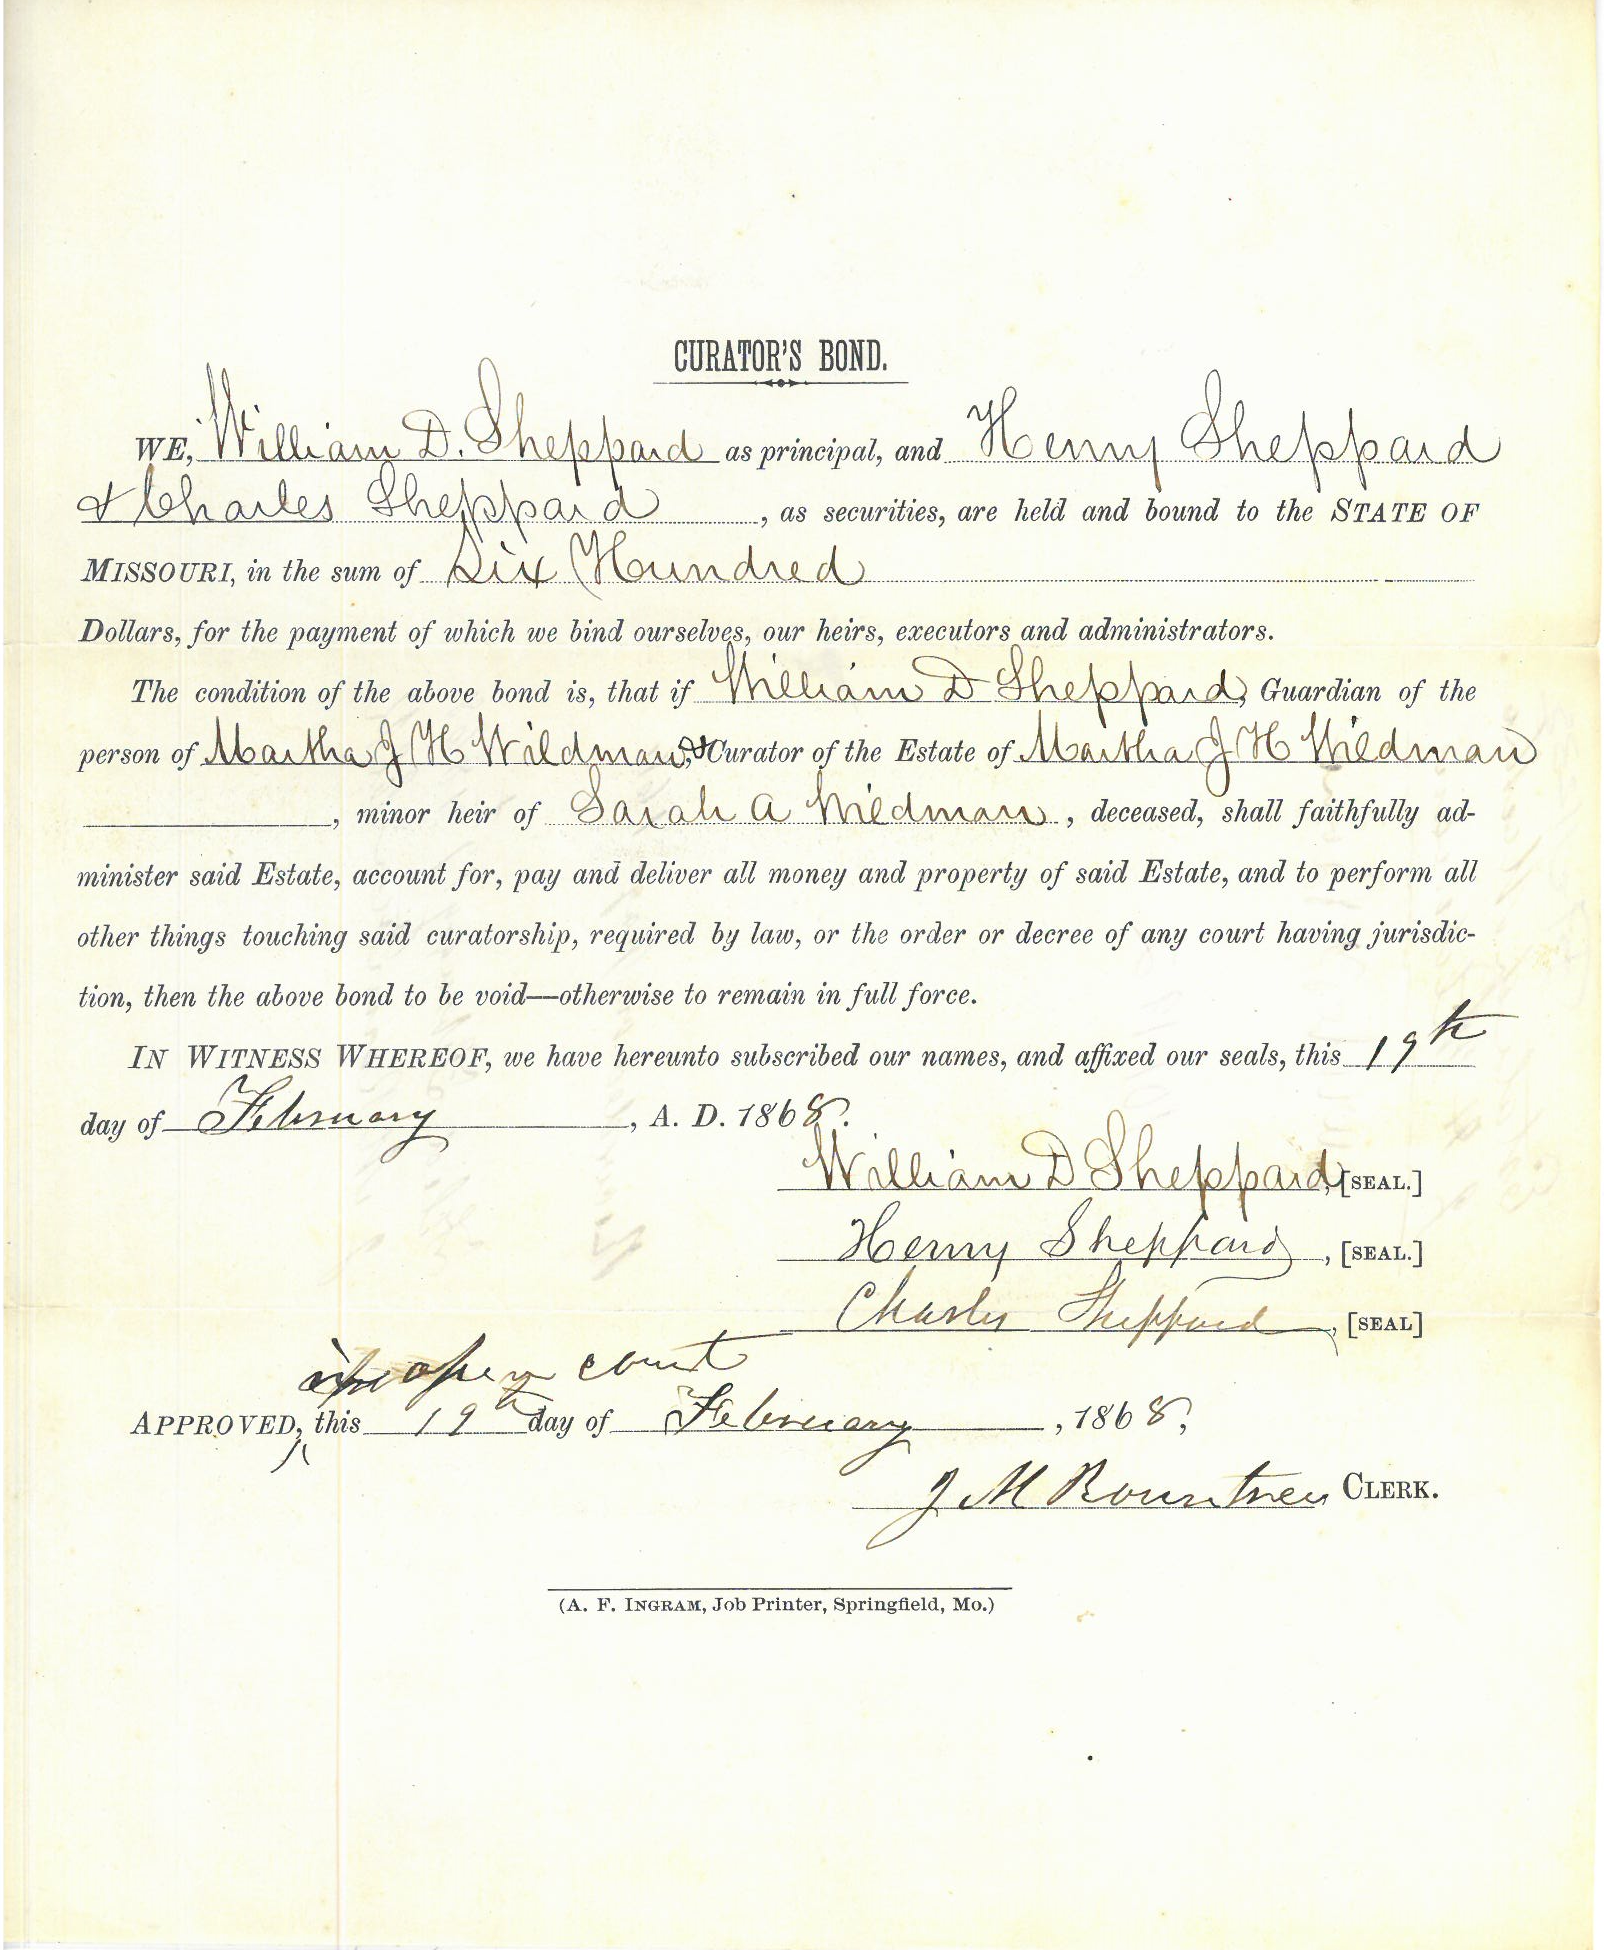 CURATOR'S BOND.
WE, William D. Sheppard as principal, and Henry Sheppard
& Charles Sheppard , as securities, are held and bound to the STATE OF
MISSOURI, in the sum of Six Hundred
Dollars, for the payment of which we bind ourselves, our heirs, executors and administrators.
The condition of the above bond is, that if William D Sheppard, Guardian of the
person of Martha J H Wildman, & Curator of the Estate of Martha J H Wildman
, minor heir of Sarah A Wildman , deceased, shall faithfully ad-
minister said Estate, account for, pay and deliver all money and property of said Estate, and to perform all
other things touching said curatorship, required by law, or the order or decree of any court having jurisdic-
tion, then the above bond to be void—otherwise to remain in full force.
IN WITNESS WHEREOF, we have hereunto subscribed our names, and affixed our seals, this 19th
day of February , A. D. 1868.
William D Sheppard, [SEAL.]
Henry Sheppard , [SEAL.]
Charles Sheppard , [SEAL]
in open court
APPROVED, this 19th day of February , 1868,
J M Rountree CLERK.
(A. F. INGRAM, Job Printer, Springfield, Mo.)